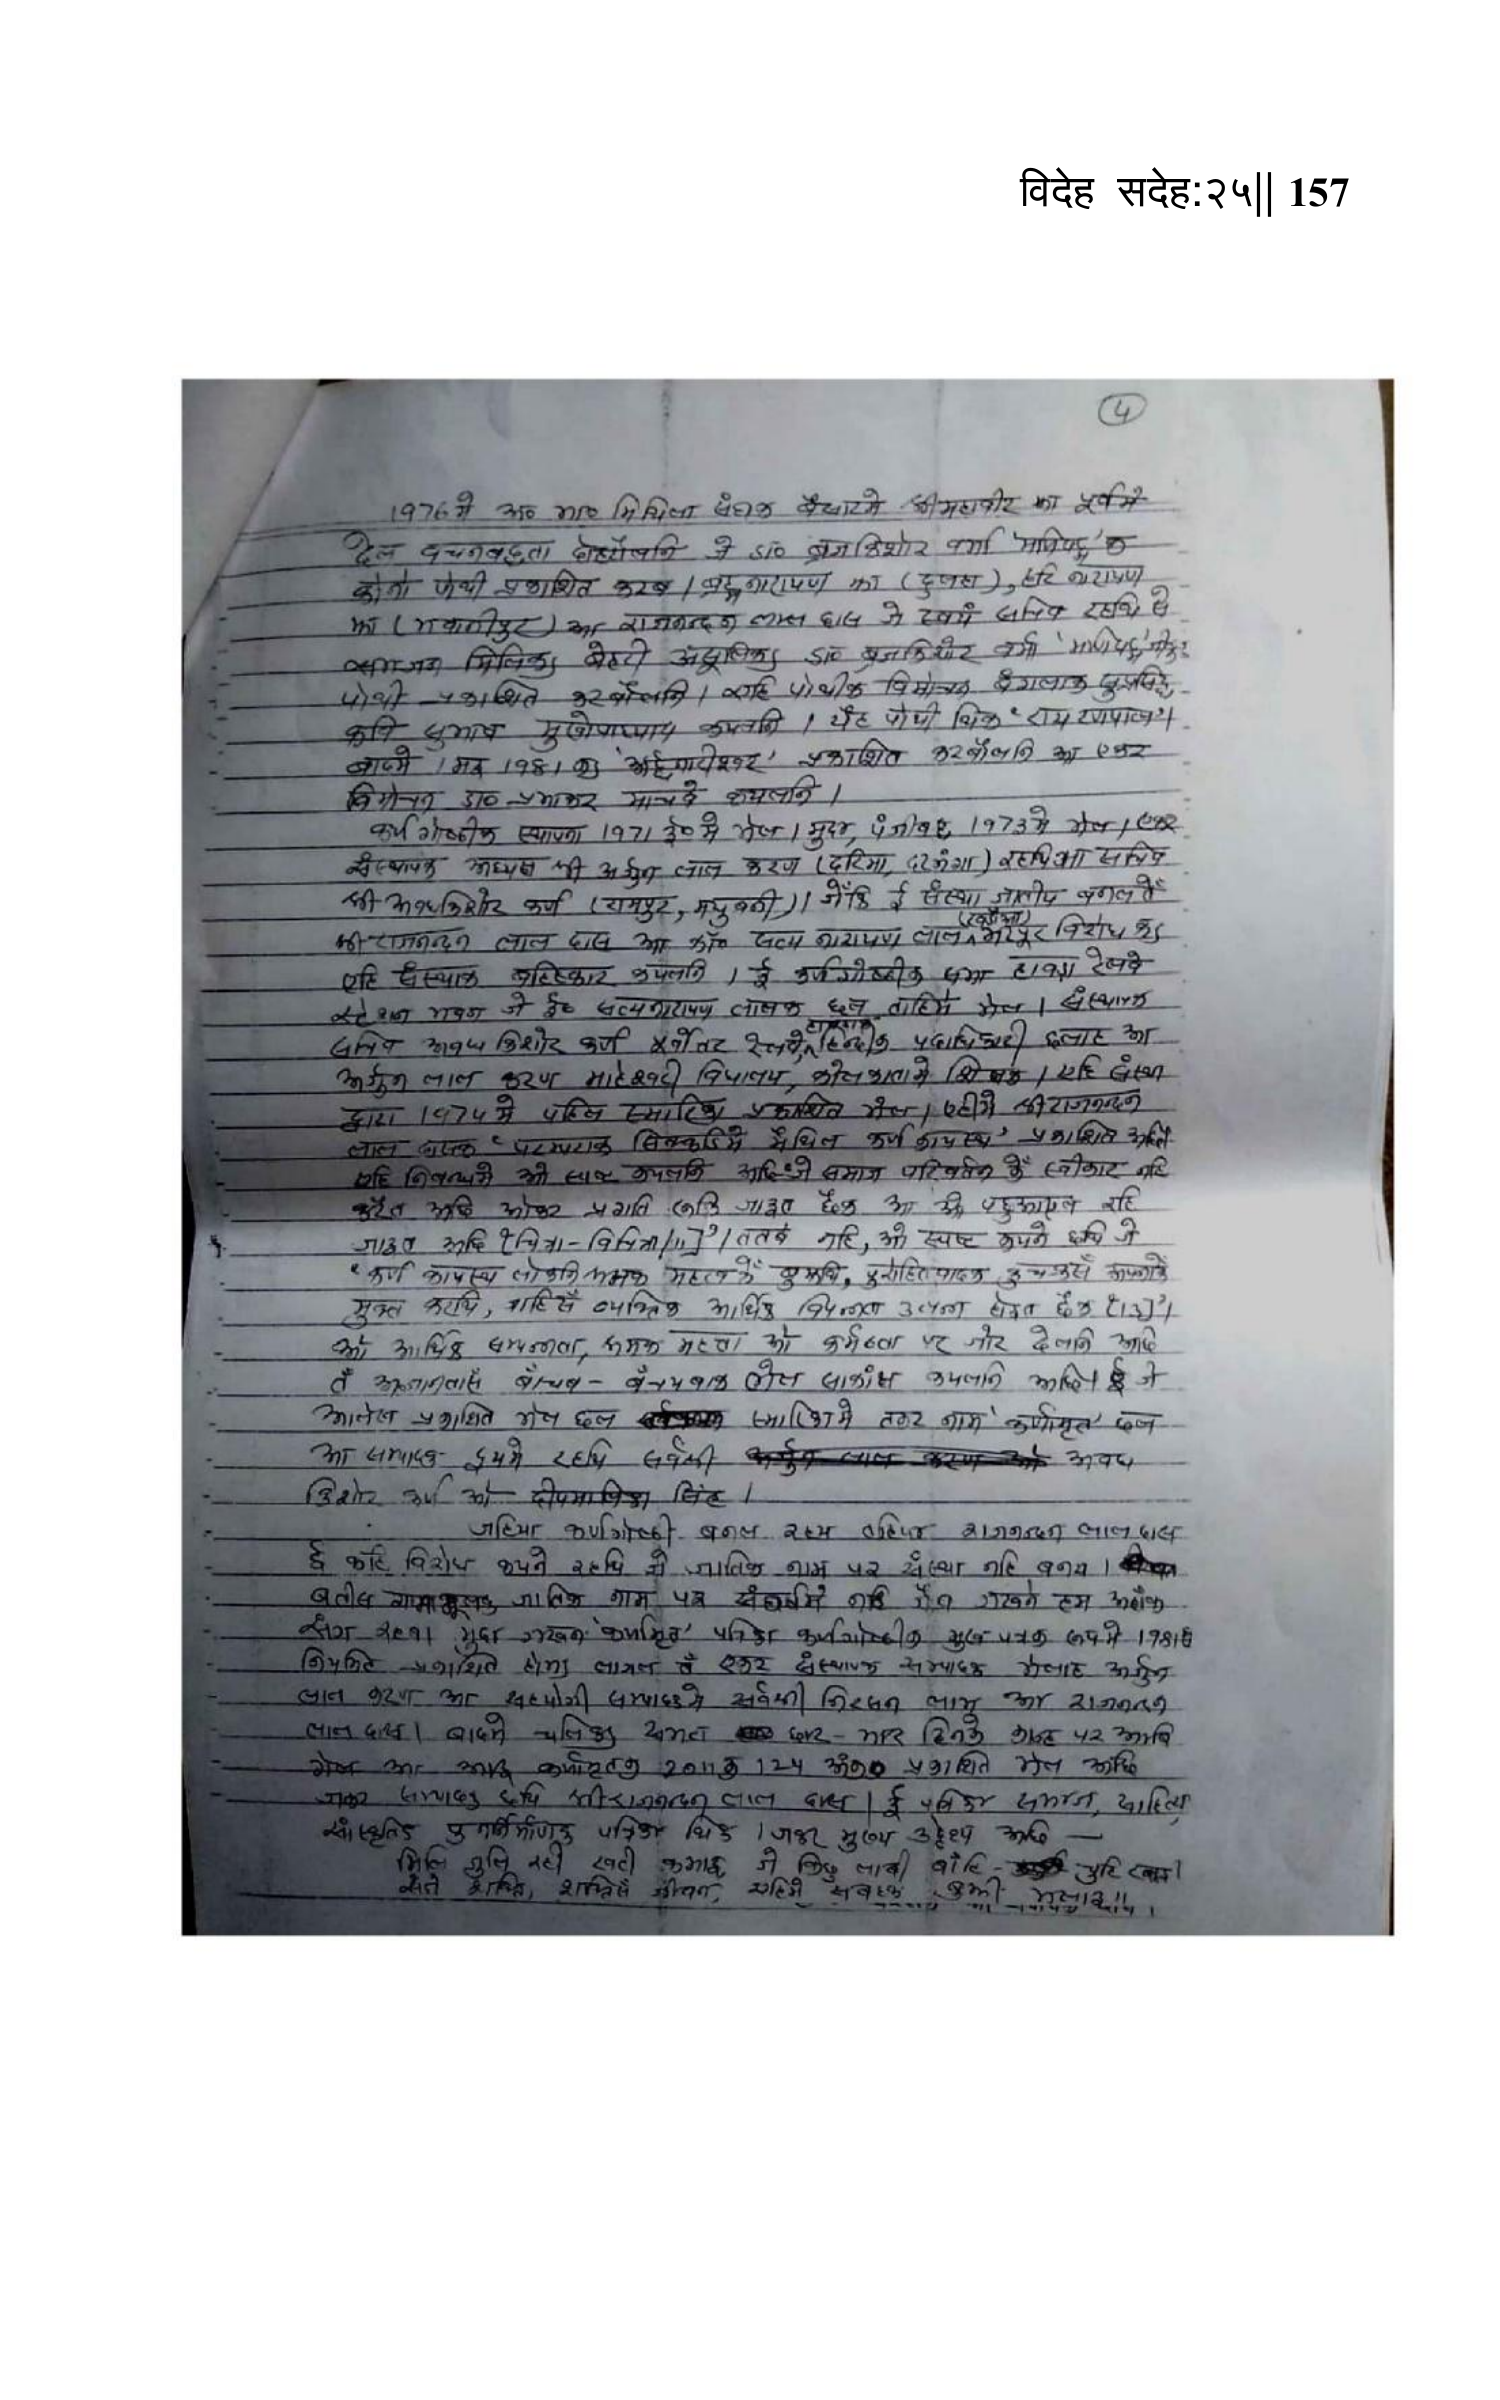 विदेह सदेह:२५|| 157
4
1976मे अ० भा० मिथिला संघक बैसारमे श्रीमहावीर झा पूर्वमे
देल वचनबद्धता दोहरौलनि जे डा० ब्रजकिशोर वर्मा 'मणिपद्म'क
कोनो पोथी प्रकाशित करब। नारायण झा ( ), हरि नारायण
झा ( ) आ राजनन्दन लाल दास जे स्वयं सचिव रहथि से
सभजन मिलिकऽ डा० ब्रजकिशोर वर्मा 'मणिपद्म'
पोथी प्रकाशित करबौलनि। एहि पोथीक विमोचन बंगलाक सुप्रसिद्ध
कवि सुभाष मुखोपाध्याय कयलनि। पोथी थिक 'राय रणपाल'।
बादमे 1 मइ 1981 कऽ 'अर्द्धनारीश्वर' प्रकाशित करबौलनि आ एकर
विमोचन डा० प्रभाकर माचवे कयलनि।
कर्ण गोष्ठीक स्थापना 1971 ई० मे भेल। मुदा, पंजीबद्ध 1973मे भेल। एकर
संस्थापक अध्यक्ष श्री अर्जुन लाल करण (दरिमा, दरभंगा) रहथि आ सचिव
श्री अवधकिशोर कर्ण (रामपुर, मधुबनी)। जेँकि ई संस्था जातीय बनल तेँ
श्री राजनन्दन लाल दास आ सत्य नारायण लाल भरपूर विरोध कऽ
एहि संस्थाक बहिस्कार कयलनि। ई कर्णगोष्ठीक सभा हावड़ा रेलवे
स्टेशन भवन जे सत्यनारायण लालक छल ताहिमे भेल। संस्थापक
सचिव अवध किशोर कर्ण रेलवे, हिन्दीक पदाधिकारी छलाह आ
अर्जुन लाल करण माहेश्वरी विद्यालय, कोलकातामे शिक्षक। एहि संस्था
द्वारा 1974 मे पहिल स्मारिका प्रकाशित भेल। एहीमे श्री राजनन्दन
लाल दासक 'परम्पराक सिक्कड़िमे मैथिल कर्ण कायस्थ' प्रकाशित अछि
एहि निबन्धमे ओ स्पष्ट कयलनि अछि जे समाज परिवर्तन केँ स्वीकार नहि
करैत अछि ओकर प्रगति रुकि जाइत छैक आ ओ पछुआएल रहि
जाइत अछि [चित्रा-विचित्रा/11]'। ततबे नहि, ओ स्पष्ट कयने छथि जे
'कर्ण कायस्थ लोकनि श्रमक महत्व केँ बुझथि, पुरोहितवादक कुचक्रसँ अपनाकेँ
मुक्त करथि, जाहिसँ व्यक्तिक आर्थिक उत्पन्न होइत छैक [13]'।
ओ आर्थिक सम्पन्नता, श्रमक महत्ता ओ कर्मठता पर जोर देलनि अछि
तँ अज्ञानतासँ बाँचब - बँचयबाक लेल साकांक्ष कयलनि अछि। ई जे
आलेख प्रकाशित भेल छल स्मारिकामे तकर नाम 'कर्णामृत' छल
आ सम्पादक द्वयमे रहथि सर्वश्री अवध
किशोर कर्ण ओ दीपमालिका सिंह।
जहिया कर्णगोष्ठी बनल रहय तहिया राजनन्दन लाल दास
ई कहि विरोध कयने रहथि जे जातिक नाम पर संस्था नहि बनय।
जातिक नाम पर नहि हम अहाँक
संग रहब। मुदा जखन 'कर्णामृत' पत्रिका कर्णगोष्ठीक मुख पत्रक रूपमे 1981सँ
नियमित प्रकाशित होमऽ लागल तँ एकर संस्थापक सम्पादक भेलाह अर्जुन
लाल करण आ सहयोगी सम्पादकमे सर्वश्री निरसन लाभ आ राजनन्दन
लाल दास। बादमे चलिकऽ समटा छार-भार हिनके कान्ह पर आबि
गेल आ आइ कर्णामृतक 2011क 124 अंक प्रकाशित भेल अछि
जकर सम्पादक छथि श्री राजनन्दन लाल दास। ई पत्रिका समाज, साहित्य,
सांस्कृतिक पुनर्निर्माणक पत्रिका थिक। जकर मुख्य उद्देश्य अछि —
मिलि जुलि रही खटी कमाइ जे किछु लाबी बाँटि-
शक्ति, जीवन, एहिमे सबहक भलाइ॥